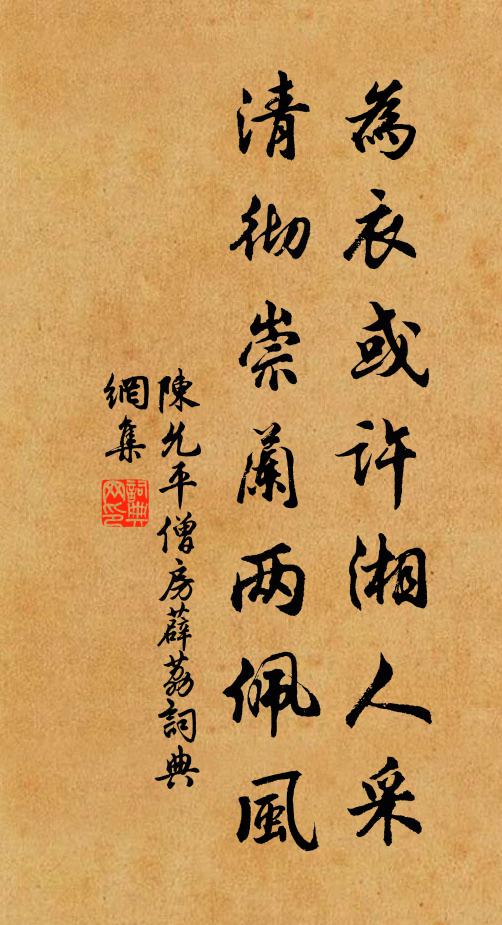 為衣或許湘人采
清彻崇蘭两佩風
陳允平僧房薜荔詞典
網集
詞典網印